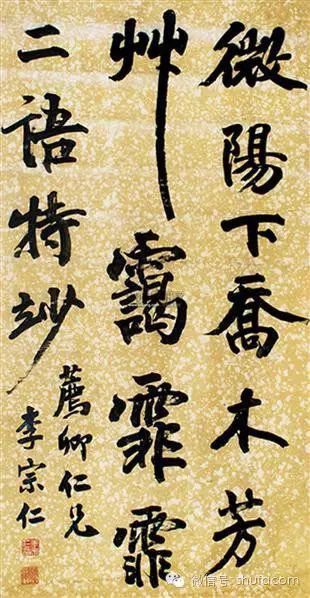 微陽下喬木芳
艸靄霏霏
二語特玅
薦卿仁兄
李宗仁
微信号: shufdcom